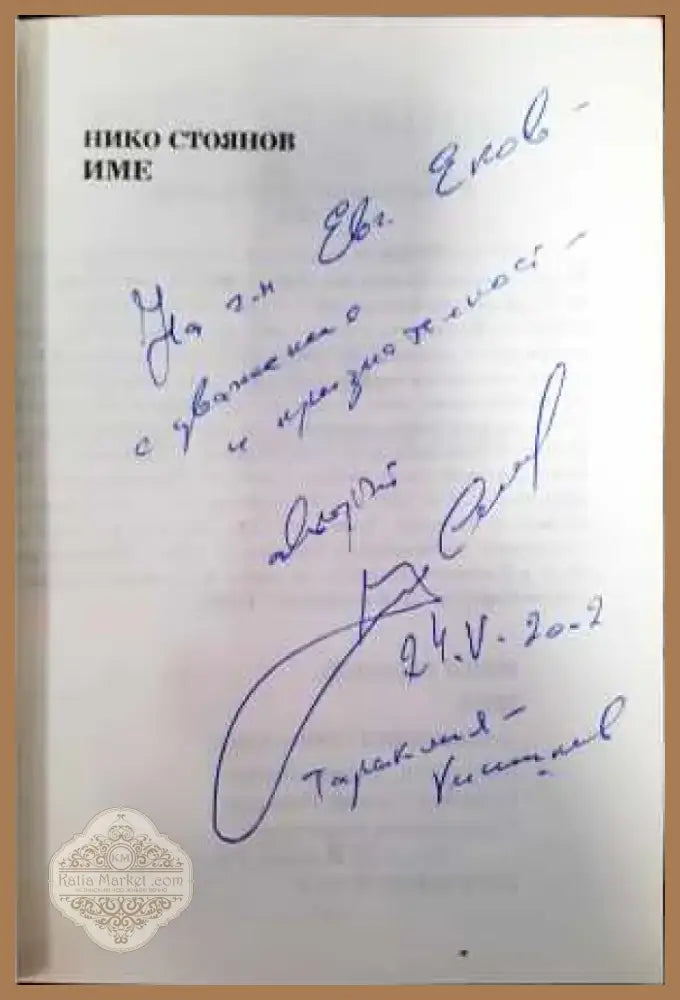 НИКО СТОЯНОВ
ИМЕ
На г-н Евг. Еков -
с уважение
и признателност -
авторът
24.V.2002
Тараклия -
Кишинев
KM
Katia Market .com